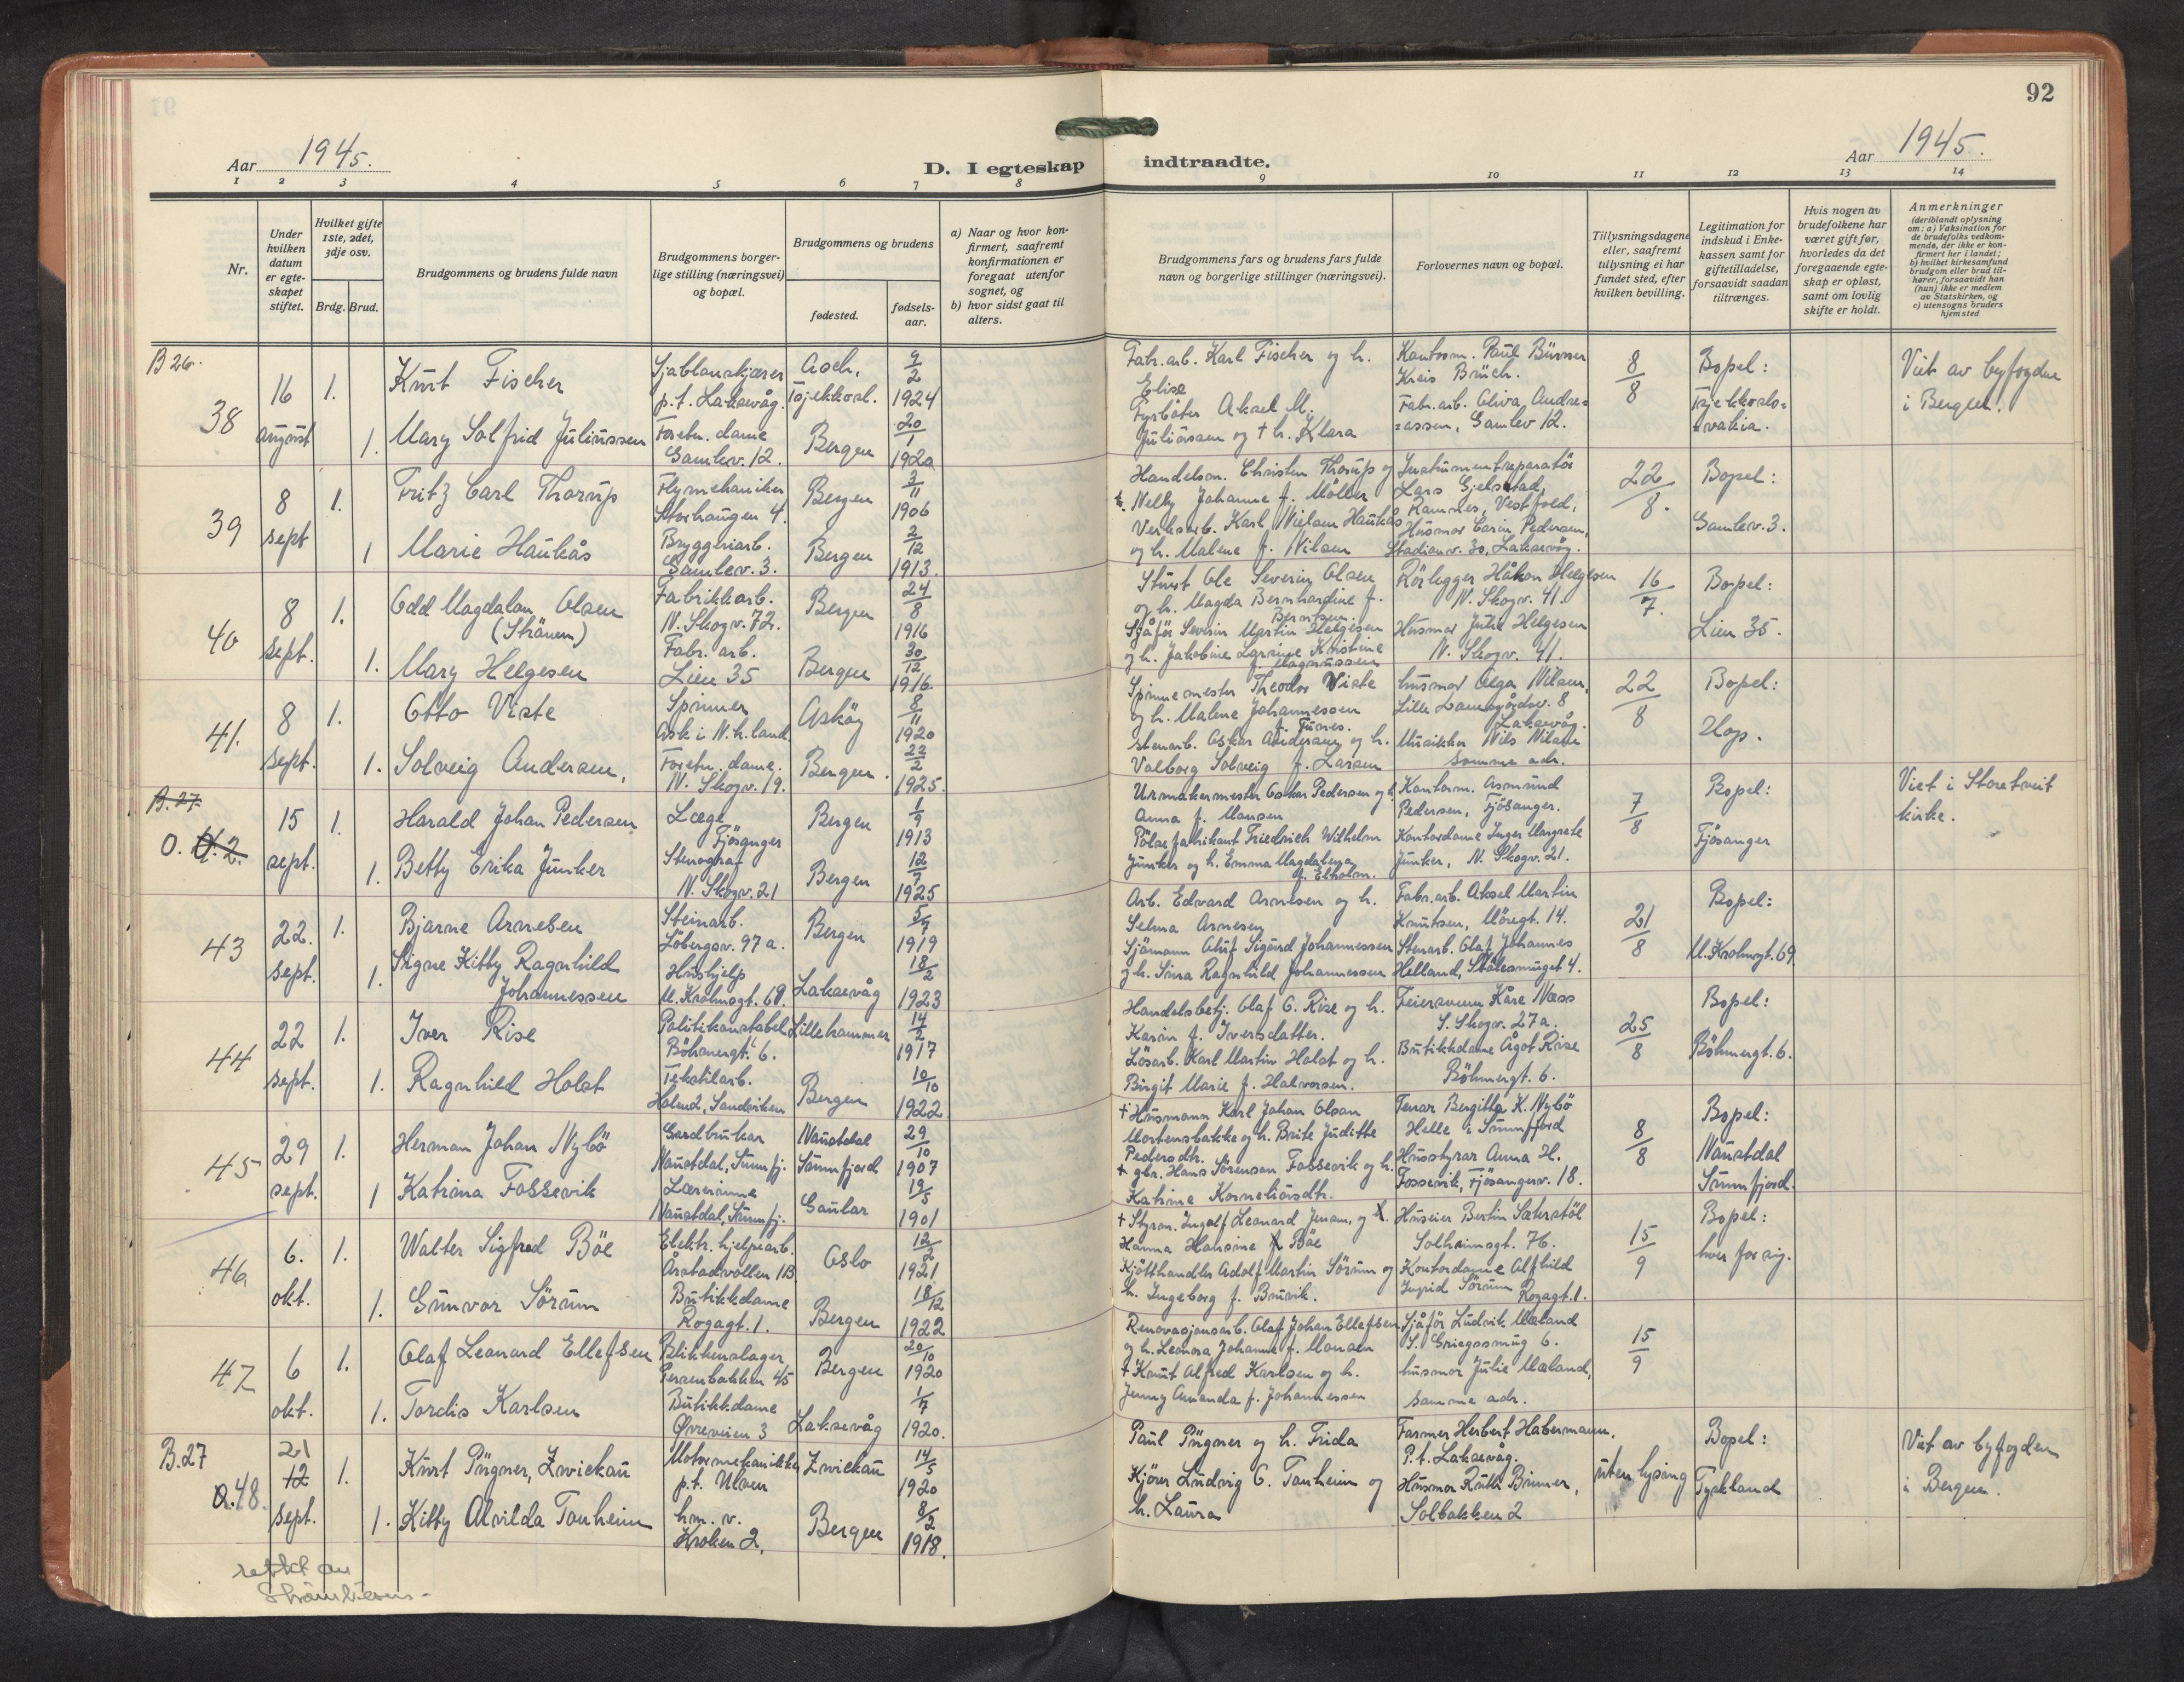 92
Aar 1945.
D. I egteskap indtraadte.
Aar 1945.
1 2 3 4 5 6 7 8 9 10 11 12 13 14
Nr.
Under hvilken datum er egteskapet stiftet.
Hvilket gifte 1ste, 2det, 3dje osv.
Brdg. Brud.
Brudgommens og brudens fulde navn
Brudgommens borgerlige stilling (næringsvei) og bopæl.
Brudgommens og brudens
fødested.
fødselsaar.
a) Naar og hvor konfirmert, saafremt konfirmationen er foregaat utenfor sognet, og
b) hvor sidst gaat til alters.
Brudgommens fars og brudens fars fulde navn og borgerlige stillinger (næringsvei).
Forlovernes navn og bopæl.
Tillysningsdagene eller, saafremt tillysning ei har fundet sted, efter hvilken bevilling.
Legitimation for indskud i Enkekassen samt for giftetilladelse, forsaavidt saadan tiltrænges.
Hvis nogen av brudefolkene har været gift før, hvorledes da det foregaaende egteskap er opløst, samt om lovlig skifte er holdt.
Anmerkninger
(deriblandt oplysning om: a) Vaksination for de brudefolks vedkommende, der ikke er konfirmert her i landet; b) hvilket kirkesamfund brudgom eller brud tilhører, forsaavidt han (hun) ikke er medlem av Statskirken, og c) utensogns bruders hjemsted
B 26.
38
16 august
1. Kurt Fischer
Sjablonskjærer p.t. Laksevåg.
Asch, Tsjekkosl.
9/2 1924
1. Mary Solfrid Juliussen
Forretn. dame Gamlev. 12.
Bergen
20/1 1920
Fabr. arb. Karl Fischer og h. Elise
Fyrbøter Aksel M. Juliussen og † h. Klara
Kontorm. Paul
Kreis Brüch.
Fabr. arb. Andreassen, Gamlev 12.
8/8
Bopel: Tsjekkoslovakia.
Viet av byfogden i Bergen.
39
8 sept
1. Fritz Carl Thorup
Flymekaniker
Storhaugen 4.
Bergen
3/11 1906
1 Marie Haukås
Bryggeriarb. Gamlev. 3.
Bergen
2/12 1913.
Handelsm. Christen Thorup og h. Nelly Johanne f. Möller
Verksarb. Karl Nielsen Haukås og h. Malene f. Nilsen
Instrumentreparatör Lars Gjelstad, Ramnes, Vestfold,
Husmor Carin Pedersen, Stadionv. 30, Laksevåg.
22/8.
Bopel: Gamlev. 3.
40
8 sept.
1. Odd Magdalon Olsen
(Stränen)
Fabrikkarb. N. Skogv. 72.
Bergen
24/8 1916
1. Mary Helgesen
Fabr. arb. Lien 35
Bergen
30/12 1916.
Stuert Ole Severin Olsen og h. Magda Bernhardine f. Berntsen.
Sjåfør Severin Martin Helgesen og h. Jakobine Larsine Kristine f. Magnussen
Rörlegger Håkon Helgesen N. Skogv. 41.
Husmor Julie Helgesen N. Skogv. 41.
16/7.
Bopel: Lien 35.
41.
8 sept.
1. Otto Viste
Spinner
Ask i N.h.land.
Asköy
8/11 1920
1. Solveig Andersen,
Forretn. dame. N. Skogv. 19.
Bergen.
22/2 1925.
Spinnemester Theodor Viste og h. Malene Johannessen f. Furnes.
Stenarb. Oskar Andersen og h. Valborg Solveig f. Larsen
husmor Olga Nilsen, Lille Damsgårdsv. 8 Laksevåg.
Musikker Nils Nilsen samme adr.
22/8
Bopel: Hop.
B. 27
O. U. 2.
15 sept.
1. Harald Johan Pedersen
Læge Fjösanger
Bergen
1/9 1913
1. Betty Erika Junker
Stenograf N. Skogv. 21
Bergen
12/7 1925
Urmakermester Oskar Pedersen og h. Anna f. Monsen
Pölsefabrikant Friedrich Wilhelm Junker og h. Emma Magdalena f. Elholm.
Kontorm. Asmund Pedersen, Fjösanger.
Kontordame Inger Margrete Junker, N. Skogv. 21.
7/8
Bopel: Fjösanger
Viet i Storetveit kirke.
43
22. sept.
1. Bjarne Arnesen
Steinarb. Löbergsv. 97 a.
Bergen
5/7 1919
1. Signe Kitty Ragnhild Johannessen
Hushjelp M. Krohnsgt. 69.
Laksevåg
18/2 1923
Arb. Edvard Arnesen og h. Selma Arnesen
Sjömann Oluf Sigurd Johannessen og h. Sina Ragnhild Johannessen
Fabr. arb. Aksel Martin Knutsen, Möregt. 14.
Stenarb. Olaf Johannes Helland, Stölesmuget 4.
21/8
Bopel: M. Krohnsgt. 69.
44
22 sept.
1. Iver Rise
Politikonstabel Böhmergt. 6.
Lillehammer
14/2 1917
1. Ragnhild Holst
Tekstilarb. Holm 2, Sandviken
Bergen
10/10 1922
Handelsbetj. Olaf O. Rise og h. Karin f. Iversdatter.
Lösarb. Karl Martin Holst og h. Birgit Marie f. Halvorsen.
Feiersvenn Kåre Næss S. Skogv. 27a.
Butikkdame Ågot Rise Böhmergt. 6.
25/8
Bopel: Böhmergt. 6.
45
29 sept.
1. Herman Johan Nybö
Gardbrukar Naustdal, Sunnfj.
Naustdal Sunnfjord
29/10 1907
1 Katrina Fossevik
Lærerinne Naustdal, Sunnfj.
Gaular
19/5 1901
† Husmann Karl Johan Olsen Mortensbakke og h. Brite Juditte Pedersdtr.
† gbr. Hans Sörenson Fossevik og h. Katrine Korneliusdtr.
Tenar Bergitta K. Nybö Helle i Sunnfjord
Husstyrar Anna H. Fossevik, Fjösangerv. 18.
8/8
Bopel: Naustdal Sunnfjord.
46
6. okt.
1. Walter Sigfred Böe
Elektr. hjelpearb. Årstadvollen 11B
Oslo
12/2 1921
1. Gunvor Sörum
Butikkdame Rogagt. 1.
Bergen
18/12 1922
† Styrm. Ingolf Leonard Jensen, og h. Hanna Hansine f. Böe
Kjötthandler Adolf Martin Sörum og h. Ingeborg f. Bruvik.
Huseier Bertin Sæterstöl Solheimsgt. 76.
Kontordame Alfhild Ingrid Sörum Rogagt. 1.
15/9
Bopel: hver for sig.
47
6 okt.
1. Olaf Leonard Ellefsen
Blikkenslager Persenbakken 45
Bergen
20/10 1920
1. Tordis Karlsen
Butikkdame Øvreveien 3
Laksevåg
1/7 1920.
Renovasjonsarb. Olaf Johan Ellefsen og h. Leonora Johanne f. Monsen
† Knut Alfred Karlsen og h. Jenny Amanda f. Johannessen
Sjåfør Ludvik Mæland S. Griegssmug 6.
husmor Julie Mæland, samme adr.
15/9
B. 27
48.
21 12 sept.
1. Kurt Pügner, Zwickau
Motormekanikker p.t. Ulven
Zwickau
14/5 1920
1. Kitty Alvilda Tonheim
hm. v. Kroken 2.
Bergen
8/2 1918.
Paul Pügner og h. Frida
Kjörer Ludvig O. Tonheim og h. Laura
Farmer Herbert Habermann, P.t. Laksevåg.
Husmor Ruth Brimer, Solbakken 2
uten lysing
Bopel: Tyskland
Viet av byfogden i Bergen.